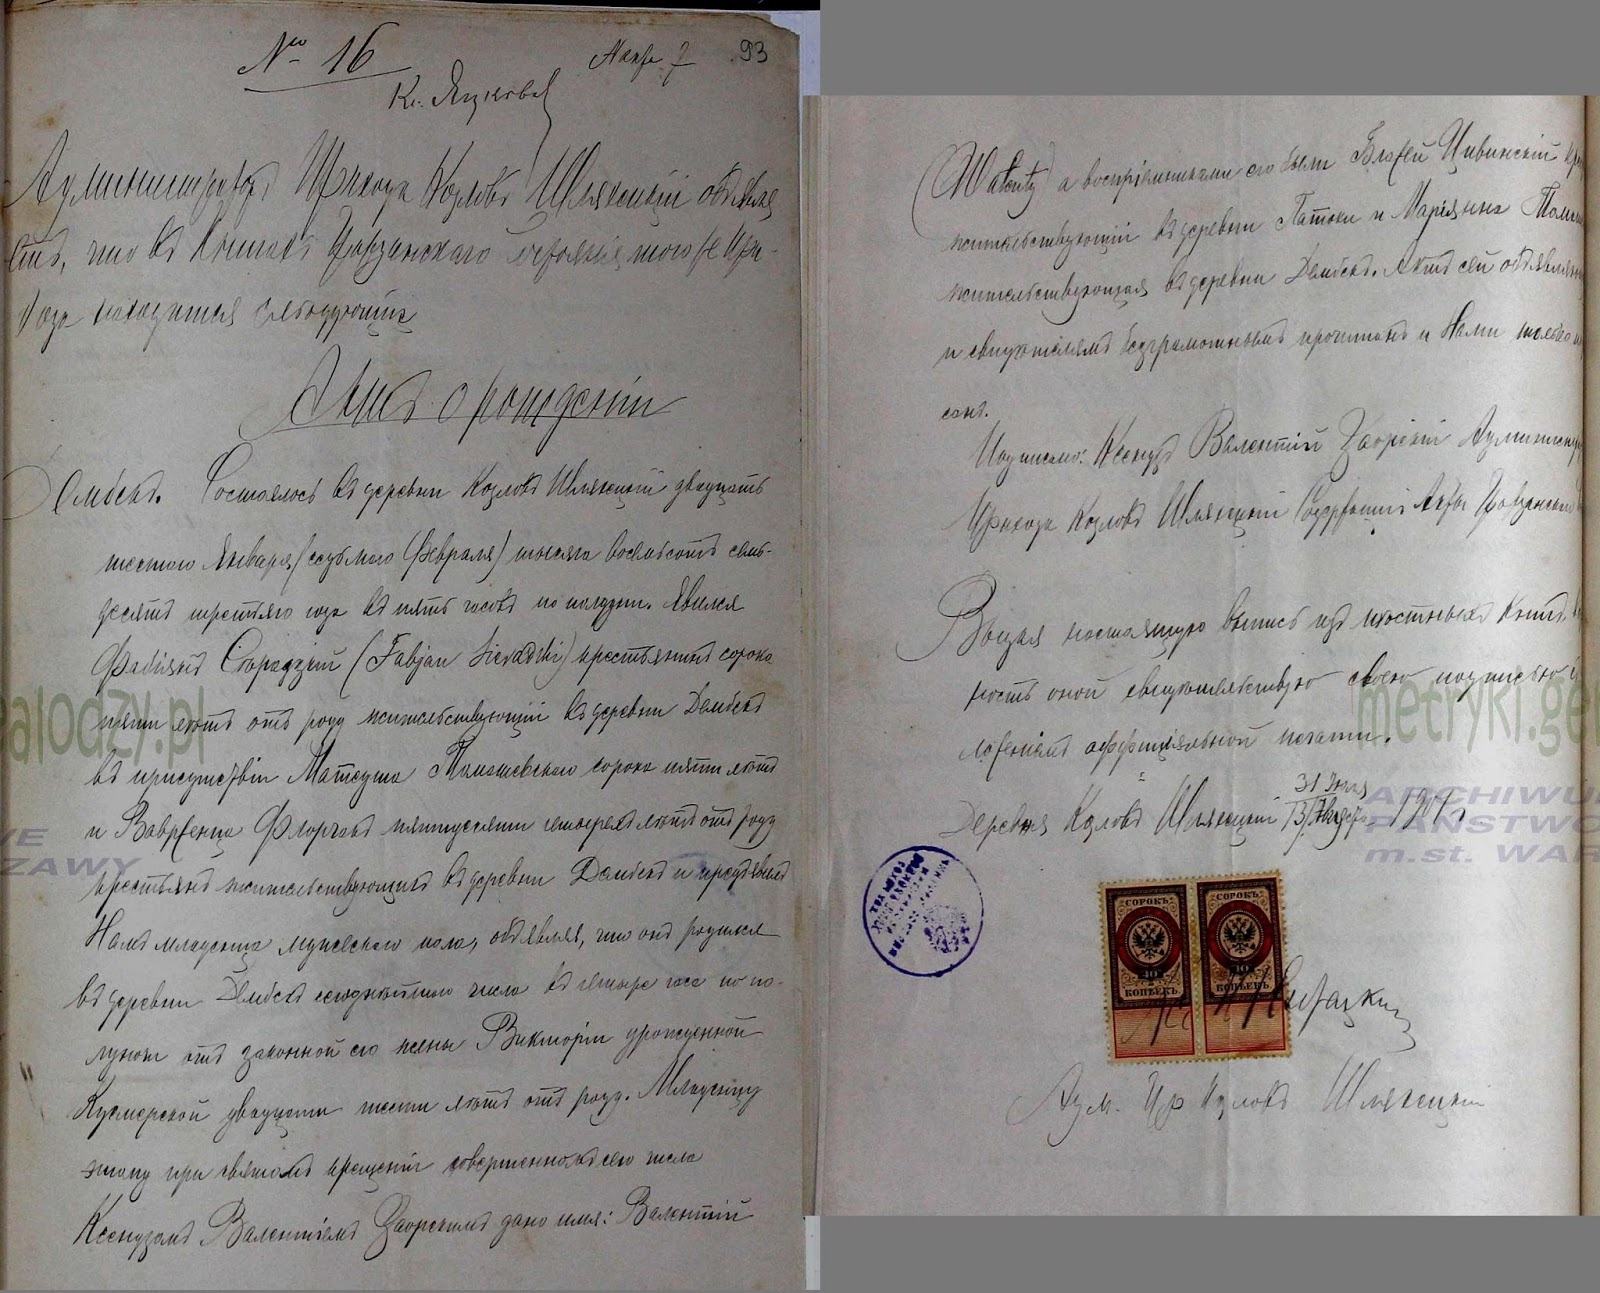 № 16
93
Администратор Прихода Козлов Шляхецкий объявля
етъ, что въ Книгахъ Гражданского Состояния того же При-
хода находится следующий
Актъ о рождении
Дембскъ. Состоялось въ деревни Козловъ Шляхецкій двадцать
шестого Января (седьмого Февраля) тысяча восемьсотъ семь-
десятъ третьяго года въ пять часовъ по полудни. Явился
Фабіянъ Сѣрадзкій (Fabjan Sieradzki) крестьянинъ сорока
пяти лѣтъ отъ роду жительствующій въ деревни Дембскъ
въ присутствіи Матеуша Томашевскаго сорока пяти лѣтъ
и Ваврženца Флорчакъ пятидесяти четырехъ лѣтъ отъ роду
крестьянъ жительствующихъ въ деревни Дембскъ и предъявилъ
Намъ младенца мужескаго пола, объявляя, что онъ родился
въ деревни Дембскъ сегоднешнаго числа въ четыре часа по по-
луночи отъ законной его жены Викторіи урожденной
двадцати шести лѣтъ отъ роду. Младенцу
этому при святомъ крещеніи совершенномъ сего числа
Ксендзомъ Валентіемъ Заорскимъ дано имя: Валентій
(Walenty) а воспріемниками его были Блажей Цивинскій
жительствующій въ деревни Патоки и Маріянна
жительствующая въ деревни Дембскъ. Актъ сей объявляющему
и свидѣтелямъ безграмотнымъ прочитанъ и Нами только
санъ.
Подписано: Ксендзъ Валентій Заорскій
Прихода Козловъ Шляхецкій Содержащій Акты Гражданскаго
Выдая настоящую выпись изъ мѣстныхъ Книгъ,
ность оной свидѣтельствую своею подписью и
ложеніемъ оффиціяльной печати.
Деревня Козловъ Шляхецкій
СОРОКЪ
40
КОПѢЕКЪ
СОРОКЪ
40
КОПѢЕКЪ
Адм. Пр Козловъ Шляхецкій
metryki.gen
ealodzy.pl
ARCHIWU
PAŃSTWO
m.st. WAR
WE
SZAWY